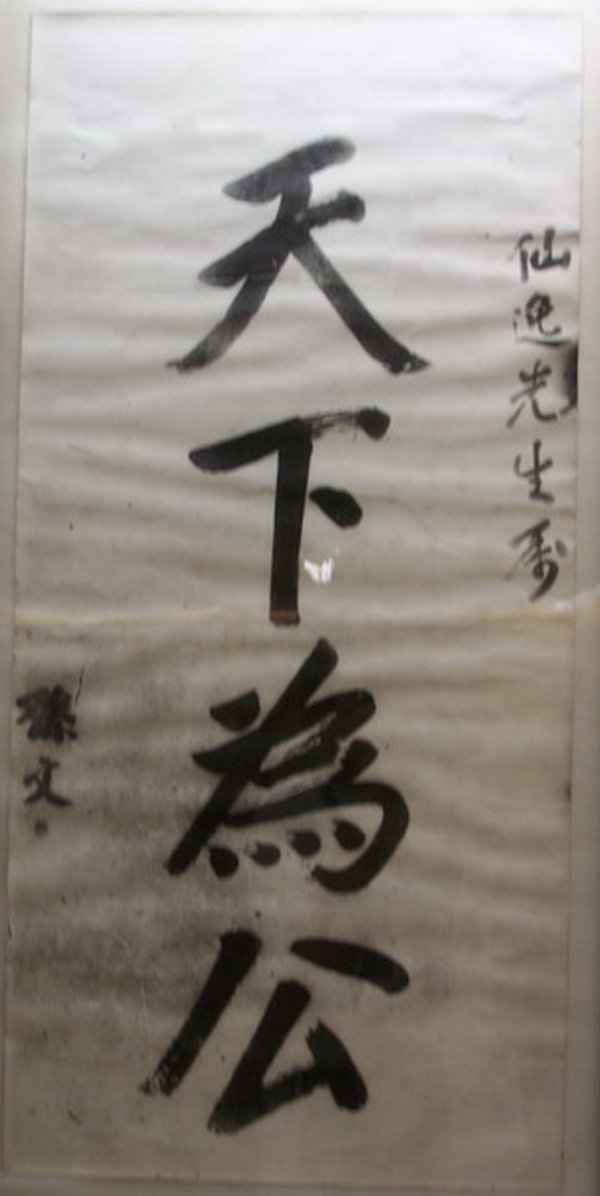 仙逸先生属
天下為公
孫文